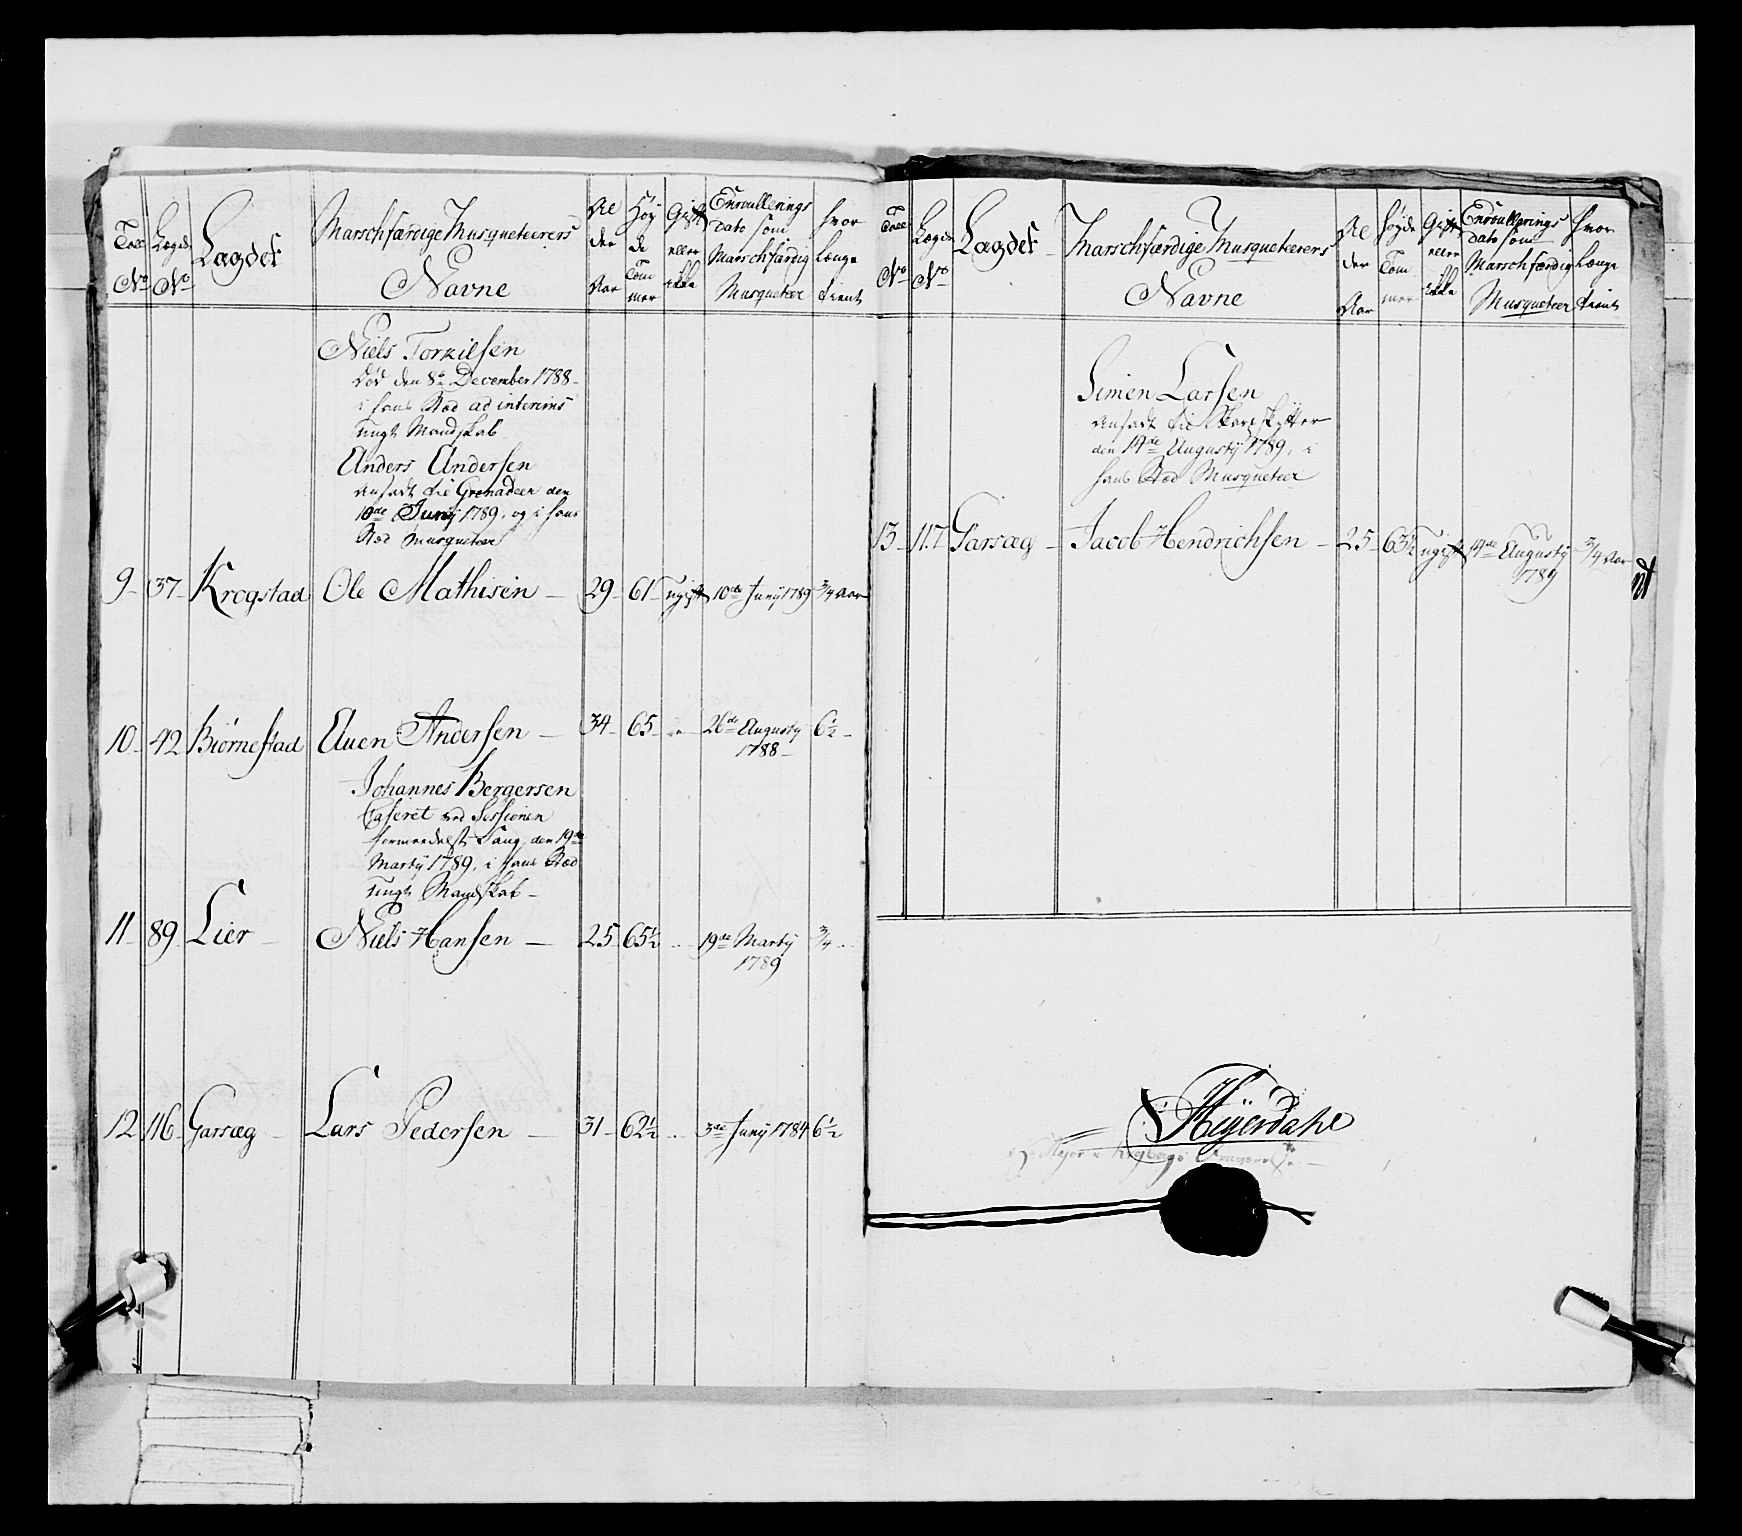 Tall No
Lægds No
Lægdet
Marschfærdige Musqueteerers Navne
Al der Aar
Høy de Tom mer
Gift eller ikke
Enroullerings dato som Marschfærdig Musqueteer
hvor længe tient
Niels Torkilsen
død den 8de December 1788
i hans Stæd ad interims
ungt Mandskab
Anders Andersen
ansadt til Grenadeer den
10de Junij 1789, og i hans
Stæd Musqueteer
9 37 Krogstad Ole Mathisen 29 61 ugift 10de Junij 1789 3/4 Aar
10 42 Biørnestad Auen Andersen 34 65 26de Augusty 1788 6 1/2
Johannes Bergersen
Caseret ved Sessionen
formedelst Svag, den 19de
Martij 1789, i hans Stæd
ungt Mandskab
11 89 Lier Niels Hansen 25 65 1/2 19de Martij 1789 3/4
12 116 Garsæg Lars Pedersen 31 62 1/2 3de Junij 1784 6 1/2
Tall No
Lægds No
Lægdet
Marschfærdige Musqueteerers Navne
Al der Aar
Høyde Tom mer
Gift eller ikke
Enroullerings dato som Marschfærdig Musqueteer
hvor længe tient
Simen Larsen
ansadt til Skarpskytter
den 14de Augustij 1789, i
hans Stæd Musqueteer
13 117 Garsæg Jacob Hendrichsen 25 63 1/2 ugift 14de Augustij 1789 3/4 Aar
Heyerdahl